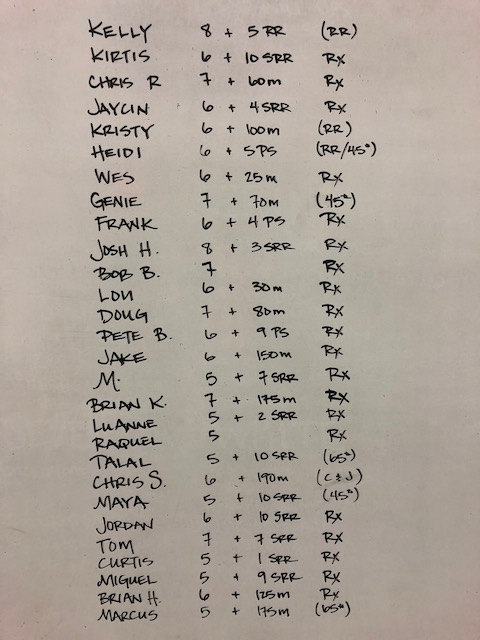 KELLY 8 + 5 RR (RR)
KIRTIS 6 + 10 SRR Rx
CHRIS R 7 + 60m Rx
JAYCIN 6 + 4 SRR Rx
KRISTY 6 + 100m (RR)
HEIDI 6 + 5 PS (RR/45#)
WES 6 + 25m Rx
GENIE 7 + 70m (45#)
FRANK 6 + 4 PS Rx
JOSH H. 8 + 3 SRR Rx
BOB B. 7 Rx
LOU 6 + 30m Rx
DOUG 7 + 80m Rx
PETE B. 6 + 9 PS Rx
JAKE 6 + 150m Rx
M. 5 + 7 SRR Rx
BRIAN K. 7 + 175m Rx
LUANNE 5 + 2 SRR Rx
RAQUEL 5 Rx
TALAL 5 + 10 SRR (65#)
CHRIS S. 6 + 190m (C & J)
MAYA 5 + 10 SRR (45#)
JORDAN 6 + 10 SRR Rx
TOM 7 + 7 SRR Rx
CURTIS 5 + 1 SRR Rx
MIGUEL 5 + 9 SRR Rx
BRIAN H. 6 + 125m Rx
MARCUS 5 + 175m (65#)